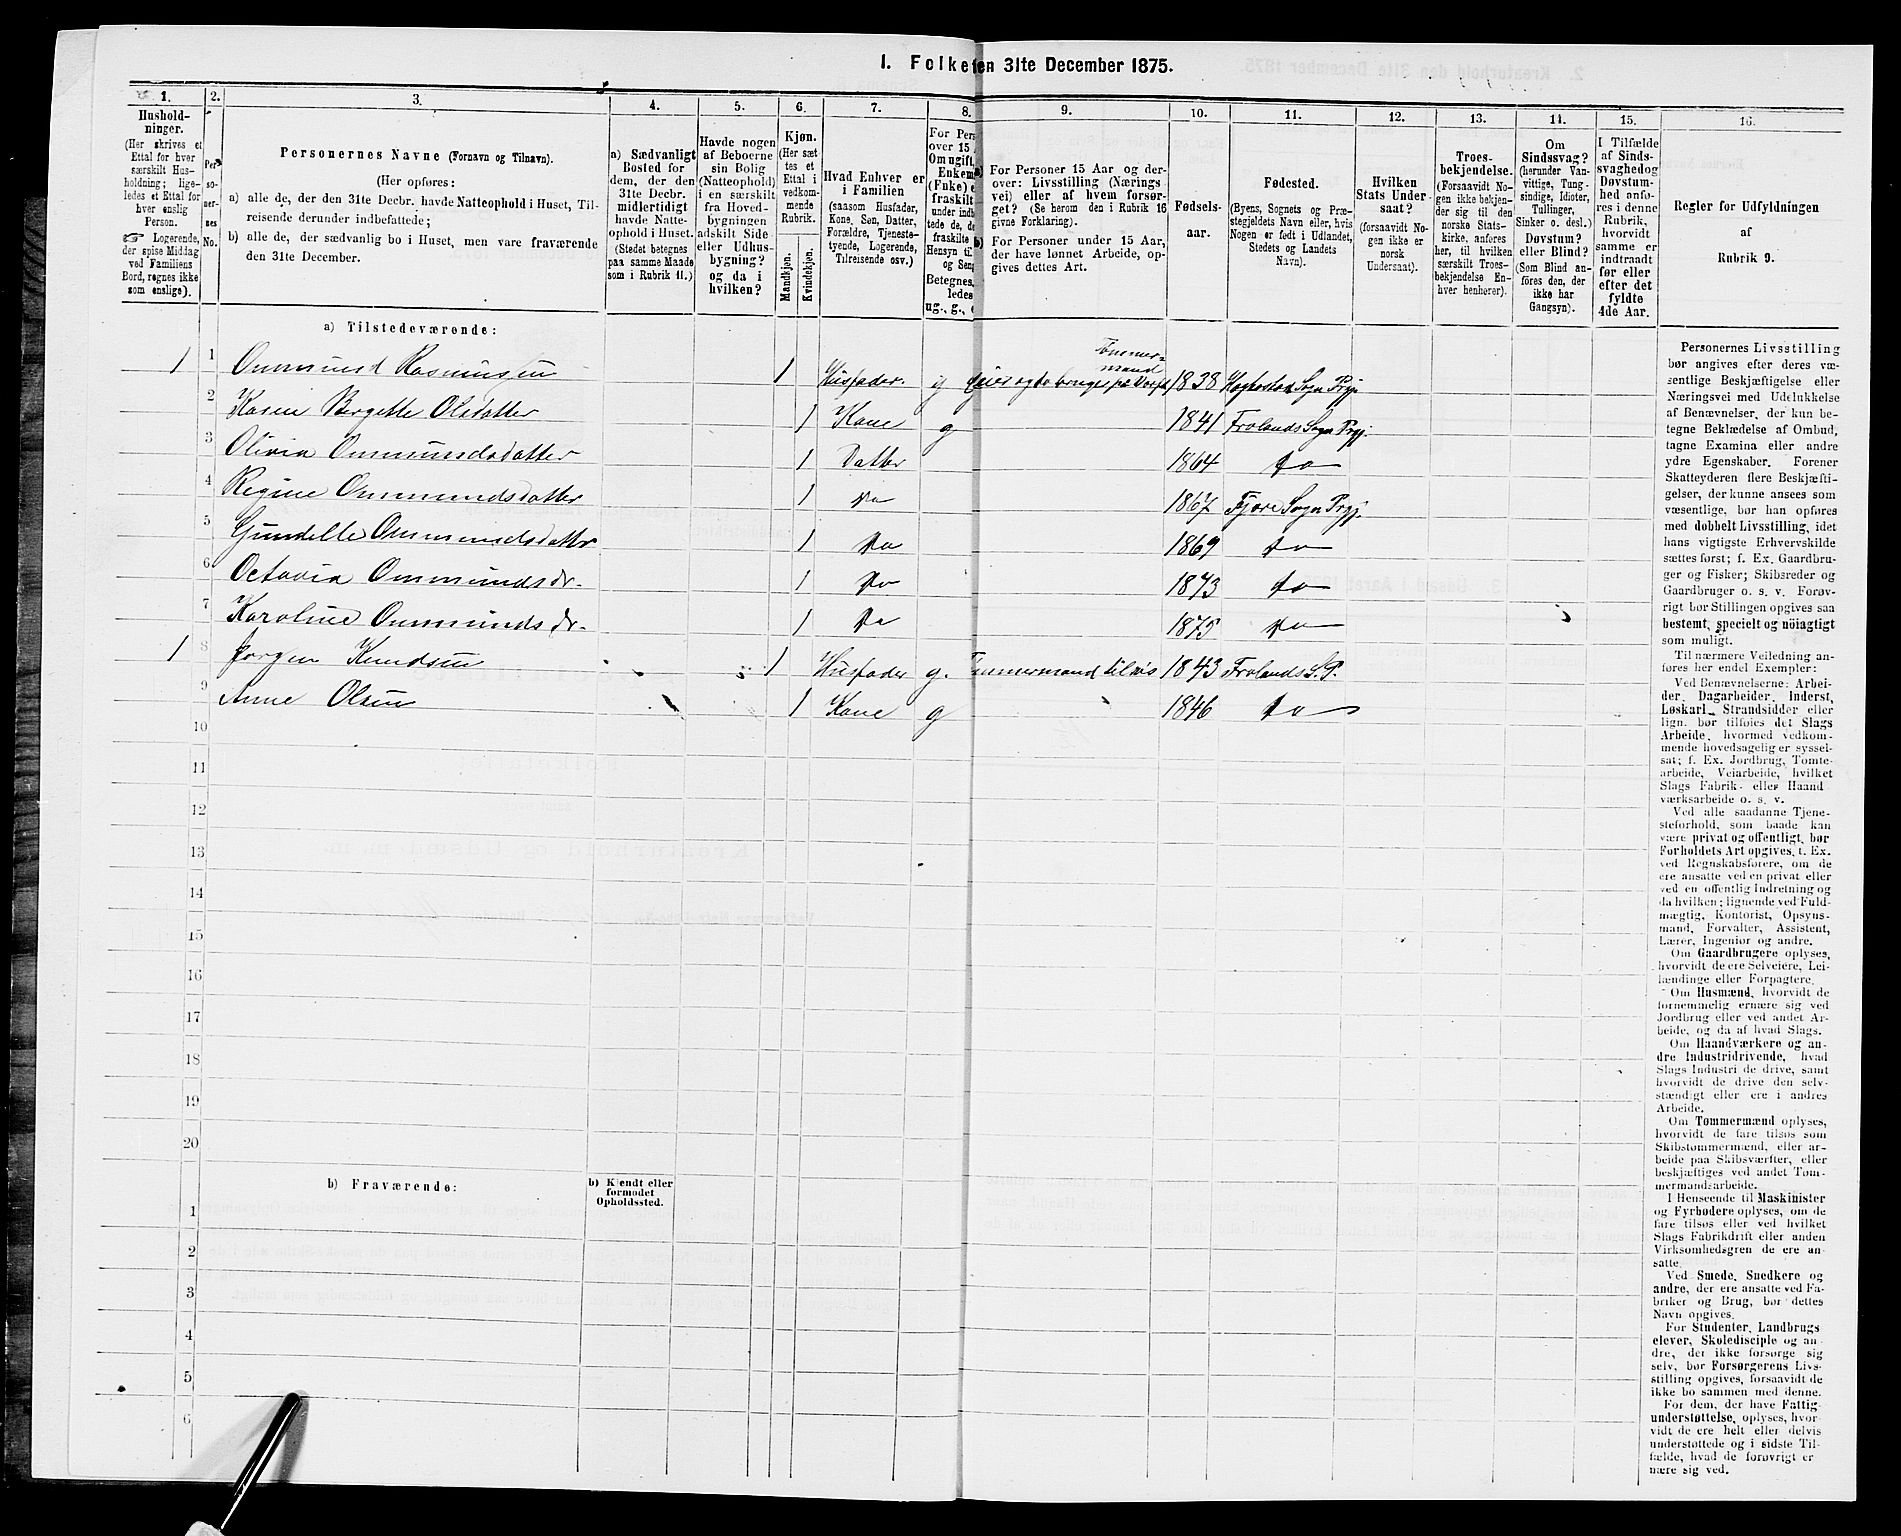 1. Folketen 31te December 1875.
1. 2. 3. 4. 5. 6. 7. 8. 9. 10. 11. 12. 13. 14. 15. 16.
Hushold-
ninger.
(Her skrives et
Ettal for hver
særskilt Hus-
holdning; lige-
ledes et Ettal for
hver enslig
Person.
☞ Logerende,
der spise Middag
ved Familiens
Bord, regnes ikke
som enslige).
Per-
so-
ner-
nes
No.
Personernes Navne (Fornavn og Tilnavn).
(Her opføres:
a) alle de, der den 31te Decbr. havde Natteophold i Huset, Til-
reisende derunder indbefattede;
b) alle de, der sædvanlig bo i Huset, men vare fraværende
den 31te December.
a) Sædvanligt
Bosted for
dem, der den
31te Decbr.
midlertidigt
havde Natte-
ophold i Huset.
(Stedet betegnes
paa samme Maade
som i Rubrik 11.)
Havde nogen
af Beboerne
sin Bolig
(Natteophold)
i en særskilt
fra Hoved-
bygningen
adskilt Side
eller Udhus-
bygning?
og da i
hvilken?
Kjøn.
(Her sæt
tes et
Ettal i
vedkom-
mende
Rubrik.
Mandkjøn.
Kvindekjøn.
Hvad Enhver er
i Familien
(saasom Husfader,
Kone, Søn, Datter,
Forældre, Tjeneste-
tyende, Logerende,
Tilreisende osv.)
For Pers
over 15
Om ugift,
Enkem
(Fuke) e
fraskilt
under indb
tede de, de
fraskilte
Hensyn ti
og Sen
Betegnes,
ledes
ug., g., e
a) For Personer 15 Aar og der-
over: Livsstilling (Nærings
vei) eller af hvem forsør-
get? (Se herom den i Rubrik 16
givne Forklaring).
b) For Personer under 15 Aar,
der have lønnet Arbeide, op-
gives dettes Art.
Fødsels-
aar.
Fødested.
(Byens, Sognets og Præ-
stegjeldets Navn eller, hvis
Nogen er født i Udlandet,
Stedets og Landets
Navn).
Hvilken
Stats Under
saat?
(forsaavidt No-
gen ikke er
norsk
Undersaat).
Troes-
bekjendelse.
(Forsaavidt No-
gen ikke bekjen-
der sig til den
norske Stats-
kirke, anføres
her, til hvilken
særskilt Troes-
bekjendelse En-
hver henhører).
Om
Sindssvag?
(herunder Van-
vittige, Tung-
sindige, Idioter,
Tullinger,
Sinker o. desl.)
Døvstum?
eller Blind?
(Som Blind an-
føres den, der
ikke har
Gangsyn).
I Tilfælde
af Sinds-
svaghed og
Døvstum-
hed anfø-
res i denne
Rubrik,
hvorvidt
samme er
indtraadt
før eller
efter det
fyldte
4de Aar.
Regler for Udfyldningen
af
Rubrik 9.
a) Tilstedeværende:
1 1 Ommund Rasmussen 1 Husfader. g Tømmer-
mand
Eier og bebruger 1838 Sogn Prgj.
2 Karen Bergette Olsdatter 1 Kone g 1841 Frolands Sogn Prgj.
3 Olivia Ommundsdatter 1 Datter 1864 do
4 Regine Ommundsdatter 1 do 1867 Fjære Sogn Prgj.
5 Gundelle Ommundsdatter 1 do 1869 do
6 Octavia Ommundsdr. 1 do 1873 do
7 Karoline Ommundsdr. 1 do 1875 do
1 8 Jørgen Knudsen 1 Husfader g. Tømmermand tilsøs 1843 Frolands S. P.
9 Anne Olsen 1 Kone g 1846 do
10
11
12
13
14
15
16
17
18
19
20
b) Fraværende:
b) Kjendt eller
formodet
Opholdssted.
1
2
3
4
5
6
Personernes Livsstilling
bør angives efter deres væ-
sentlige Beskjæftigelse eller
Næringsvei med Udelukkelse
af Benævnelser, der kun be-
tegne Beklædelse af Ombud,
tagne Examina eller andre
ydre Egenskaber. Forener
Skatteyderen flere Beskjæfti-
gelser, der kunne ansees som
væsentlige, bør han opføres
med dobbelt Livsstilling, idet
hans vigtigste Erhvervskilde
sættes først; f. Ex. Gaardbru-
ger og Fisker; Skibsreder og
Gaardbruger o. s. v. Forøv-
rigt bør Stillingen opgives saa
bestemt, specielt og nøiagtigt
som muligt.
Til nærmere Veiledning an-
føres her endel Exempler:
Ved Benævnelserne: Arbei-
der, Dagarbeider, Inderst,
Løskarl, Strandsidder eller
lign. bør tilføies det Slags
Arbeide, hvormed vedkom-
mende hovedsagelig er syssel-
sat; f. Ex. Jordbrug, Tomte-
arbeide, Veiarbeide, hvilket
Slags Fabrik- eller Haand
værksarbeide o. s. v.
Ved alle saadanne Tjene-
steforhold, som baade kan
være privat og offentligt, bør
Forholdets Art opgives, t. Ex.
ved Regnskabsførere, om de
ere ansatte ved en privat eller
ved en offentlig Indretning og
da hvilken; lignende ved Fuld-
mægtig, Kontorist, Opsyns-
mand, Forvalter, Assistent,
Lærer, Ingeniør og andre.
Om Gaardbrugere oplyses,
hvorvidt de ere Selveiere, Lei-
lændinge eller Forpagtere.
Om Husmænd, hvorvidt de
fornemmelig ernære sig ved
Jordbrug eller ved andet Ar-
beide, og da af hvad Slags.
Om Haandværkere og an-
dre Industridrivende, hvad
Slags Industri de drive, samt
hvorvidt de drive den selv-
stændigt eller ere i andres
Arbeide.
Om Tømmermænd oplyses,
hvorvidt de fare tilsøs som
Skibstømmermænd, eller ar-
beide paa Skibsværfter, eller
beskjæftiges ved andet Tøm-
mermandsarbeide.
I Henseende til Maskinister
og Fyrbødere oplyses, om de
fare tilsøs eller ved hvilket
Slags Fabrikdrift eller anden
Virksomhedsgren de ere an-
satte.
Ved Smede, Snedkere og
andre, der ere ansatte ved Fa-
briker og Brug, bør dettes
Navn opgives.
For Studenter, Landbrugs
elever, Skoledisciple og an-
dre, der ikke forsørge sig
selv, bør Forsørgerens Livs-
stilling opgives, forsaavidt de
ikke bo sammen med denne.
For dem, der have Fattig
understøttelse, oplyses, hvor-
vidt de ere helt eller delvis
understøttede og i sidste Til-
fælde, hvad de forøvrigt er
nære sig ved.